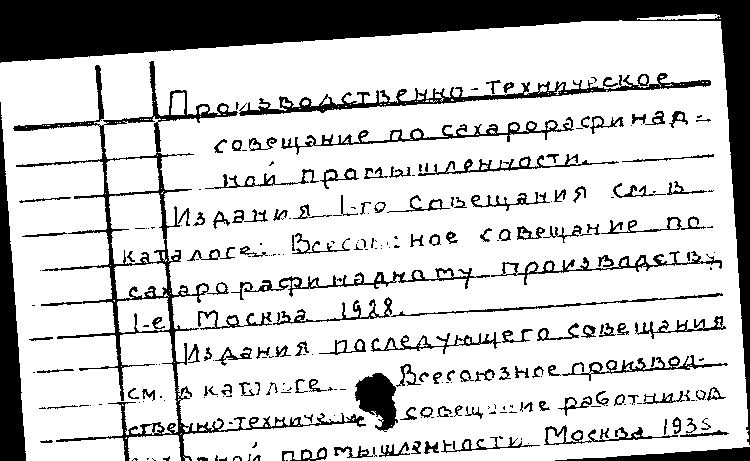 Производственно-техническое
совещание по сахарорафинад-
ной промышленности.
Издания 1-го совещания см. в
каталоге: Всесоюзное совещание по
сахарорафинадному производству,
1-е. Москва 1928.
Издания последующего совещания
см. в каталоге Всесоюзное производ-
ственно-техническое совещание работников
промышленности Москва 1935.